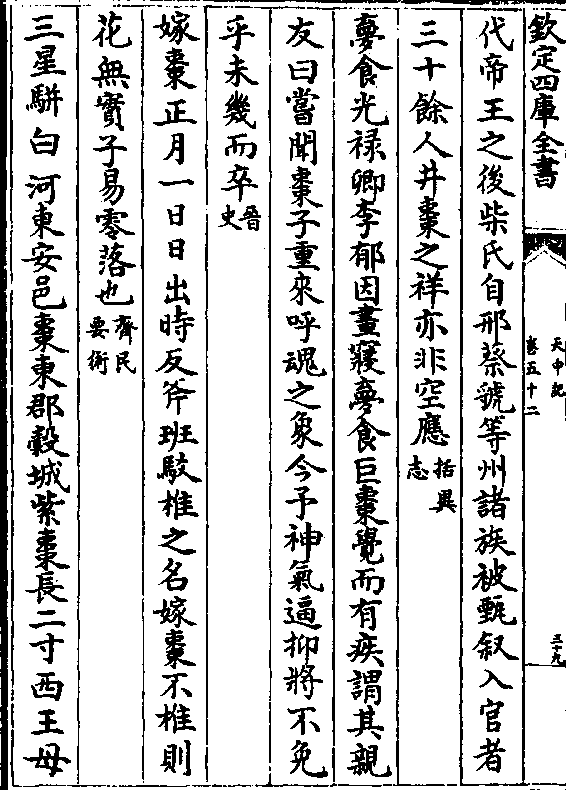 欽定四庫全書
天中記
卷五十二
三十九
代帝王之後柴氏自邢蔡虢等州諸族被甄叙入官者
三十餘人井棗之祥亦非空應括異志
夣食光禄卿李郁因晝寢夣食巨棗覺而有疾謂其親
友曰嘗聞棗子重來呼魂之象今予神氣逼抑將不免
乎未幾而卒晉史
嫁棗正月一日日出時反斧班駁椎之名嫁棗不椎則
花無實子易零落也齊民要術
三星駢白河東安邑棗東郡穀城紫棗長二寸西王母